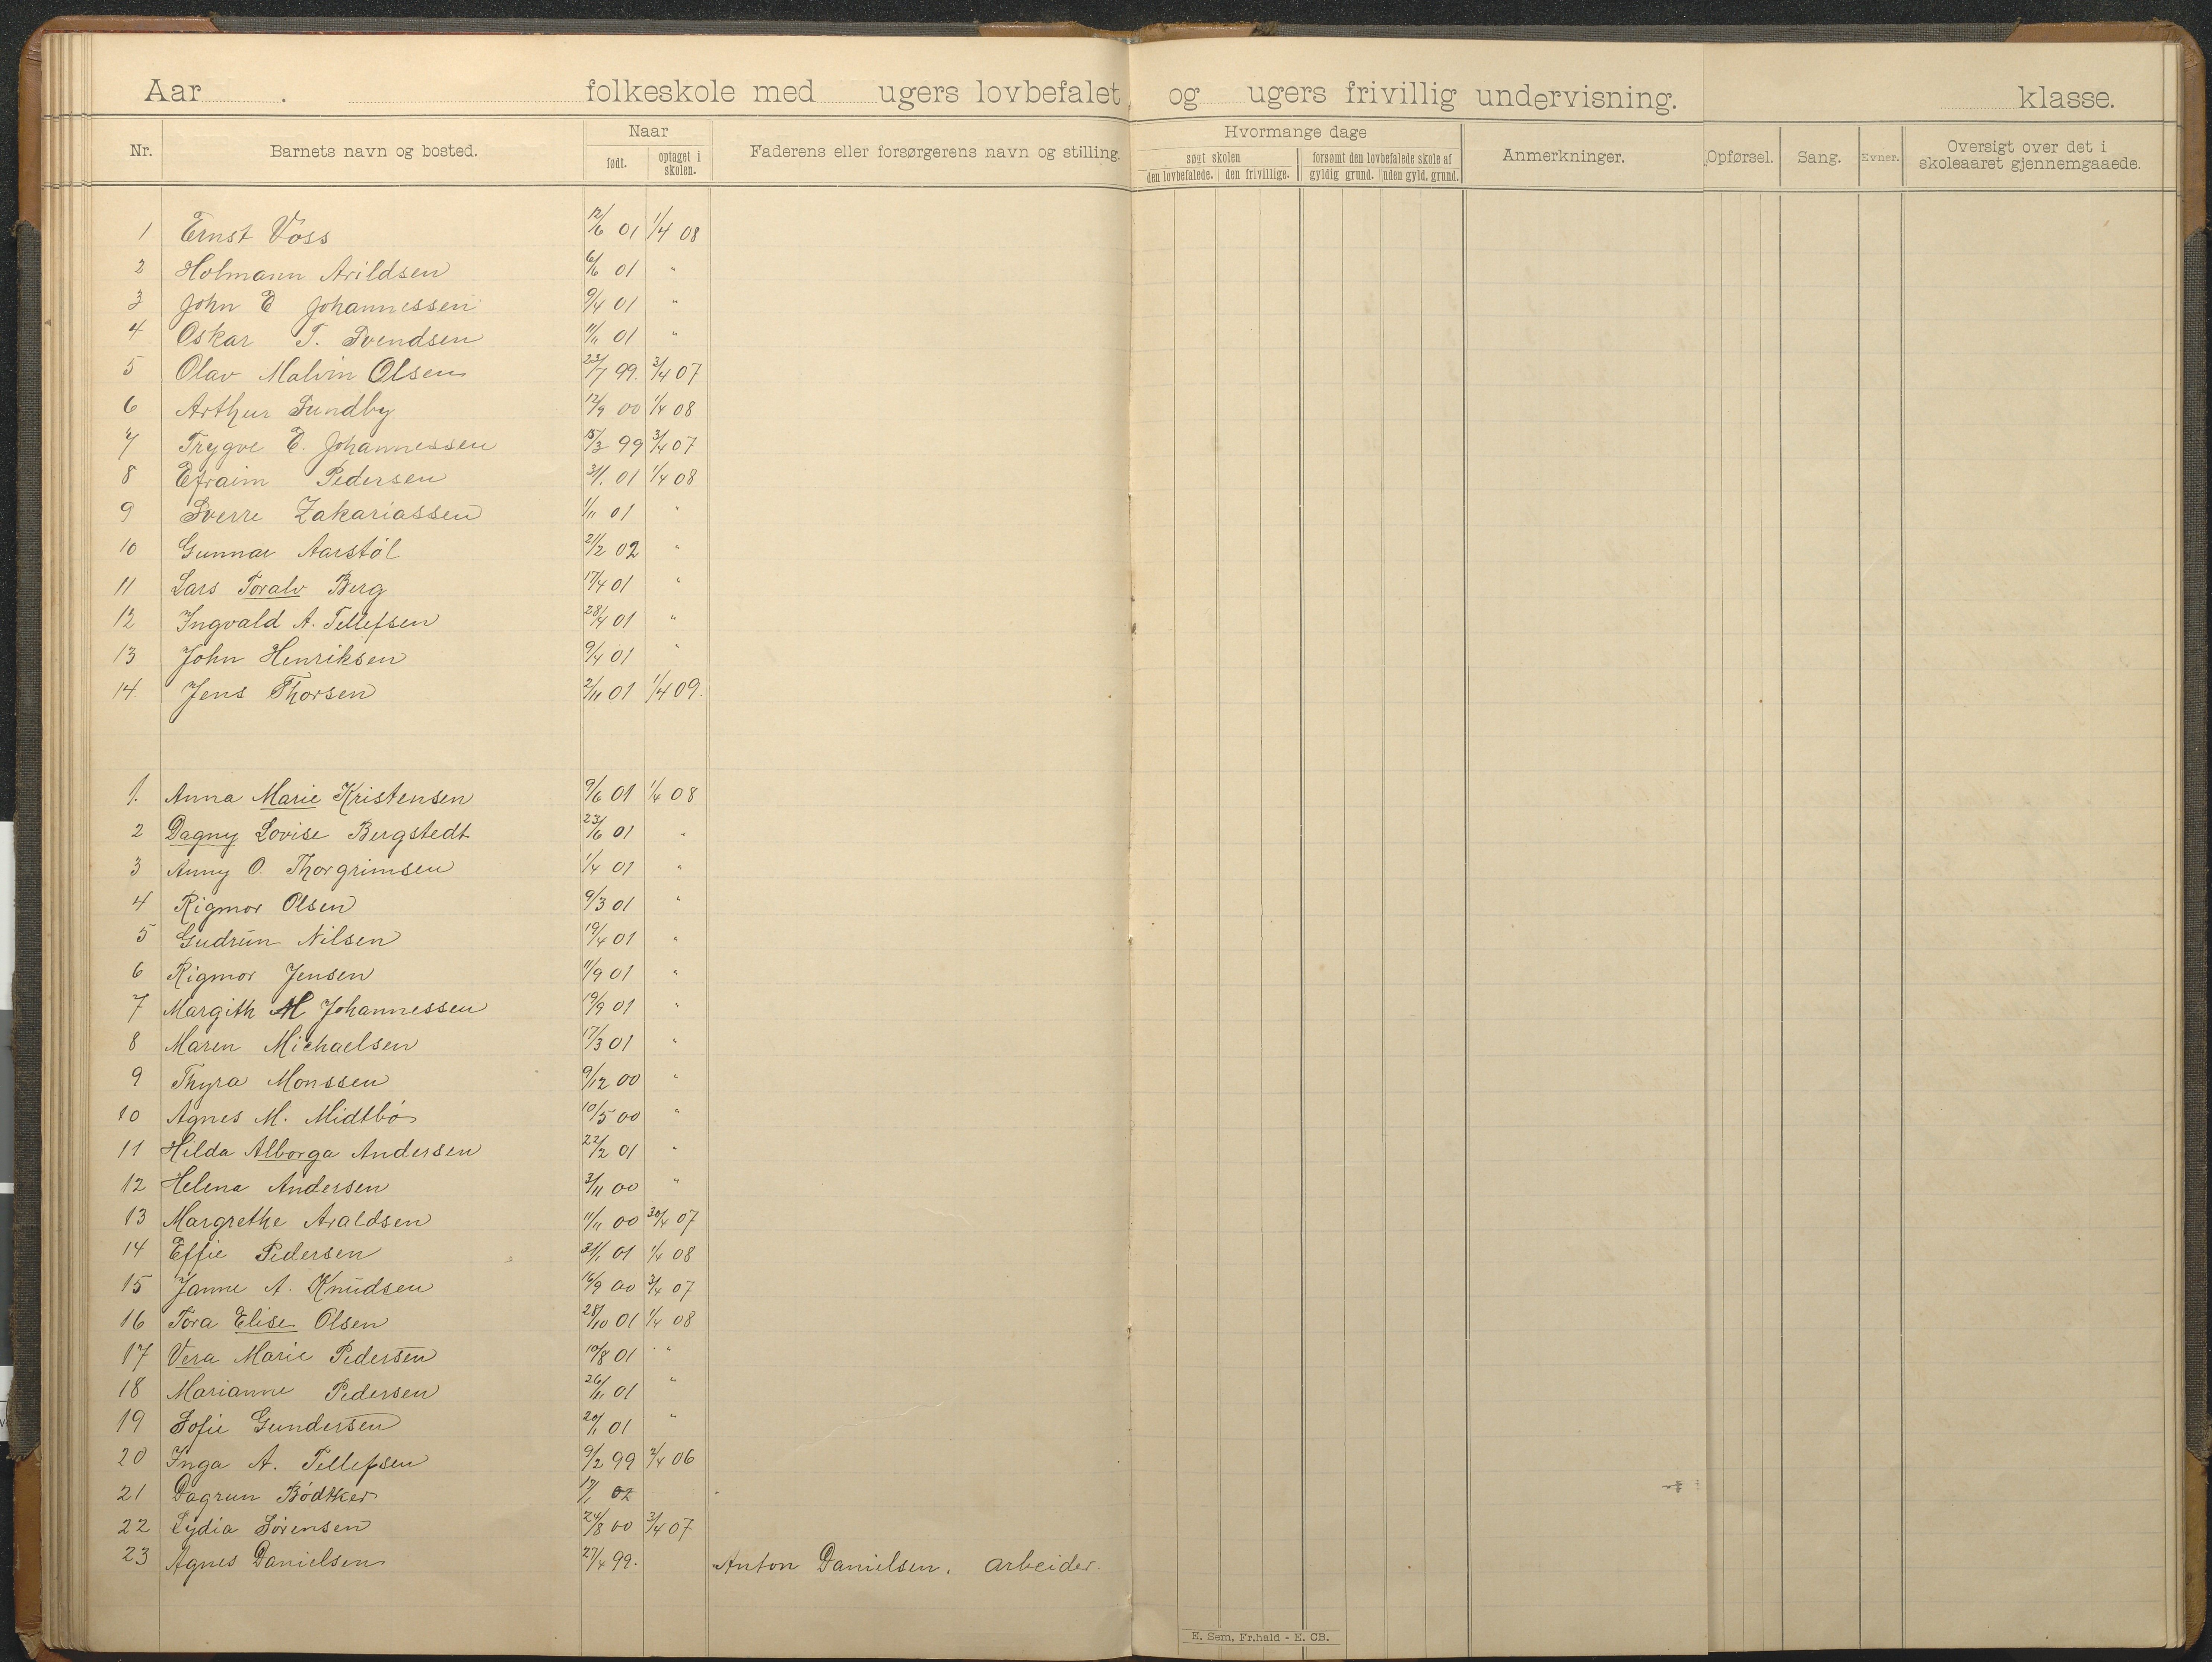 Aar . folkeskole med ugers lovbefalet, og ugers frivillig undervisning. klasse.
Nr. Barnets navn og bosted. Naar Faderens eller forsørgerens navn og stilling. Hvormange dage Anmerkninger. Opførsel. Sang. Evner. Oversigt over det i skoleaaret gjennemgaaede.
født. optaget i skolen. søgt skolen forsømt den lovbefalede skole af
den lovbefalede. den frivillige. gyldig grund. uden gyld. grund.
1 Ernst Voss 12/6 01 1/4 08
2 Holmann Arildsen 6/6 01 "
3 John E Johannessen 9/4 01 "
4 Oskar T. Svendsen 11/11 01 "
5 Olav Malvin Olsen 23/7 99. 3/4 07
6 Arthur Sundby 12/9 00 1/4 08
7 Trygve E. Johannessen 15/3 99 3/4 07
8 Efraim Pedersen 31/1 01 1/4 08
9 Sverre Zakariassen 1/11 01 "
10 Gunnar Aarstøl 21/2 02 "
11 Lars Toralv Berg 17/4 01 "
12 Ingvald A. Tellefsen 28/4 01 "
13 John Henriksen 9/4 01 "
14 Jens Thorsen 2/11 01 1/4 09.
1. Anna Marie Kristensen 9/6 01 1/4 08
2 Dagny Lovise Bergstedt 23/6 01 "
3 Anny O. Thorgrimsen 1/4 01 "
4 Rigmor Olsen 9/3 01 "
5 Gudrun Nilsen 19/4 01 "
6 Rigmor Jensen 11/9 01 "
7 Margith M Johannessen 19/9 01 "
8 Maren Michaelsen 17/3 01 "
9 Thyra Monssen 9/12 00 "
10 Agnes M. Midtbø 10/5 00 "
11 Hilda Alborga Andersen 22/2 01 "
12 Helena Andersen 3/11 00 "
13 Margrethe Araldsen 11/11 00 30/4 07
14 Effie Pedersen 31/1 01 1/4 08
15 Janne A. Knudsen 16/9 00 3/4 07
16 Tora Elise Olsen 28/10 01 1/4 08
17 Vera Marie Pedersen 10/8 01 "
18 Marianne Pedersen 26/11 01 "
19 Sofie Gundersen 20/1 01 "
20 Inga A. Tellefsen 9/2 99 2/4 06
21 Dagrun Bødtker 17/1 02
22 Lydia Sørensen 24/8 00 3/4 07
23 Agnes Danielsen 27/4 99. Anton Danielsen, arbeider.
E. Sem, Fr.hald - E. CB.